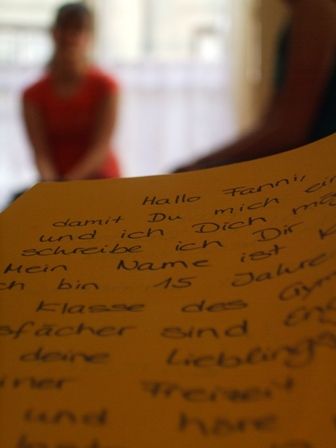 Hallo Fanni,
damit Du mich
und ich Dich
schreibe ich Dir
Mein Name ist
ch bin 15 Jahre
Klasse des Gym
sfächer sind Eng
deine Lieblings
iner Freizeit
und höre